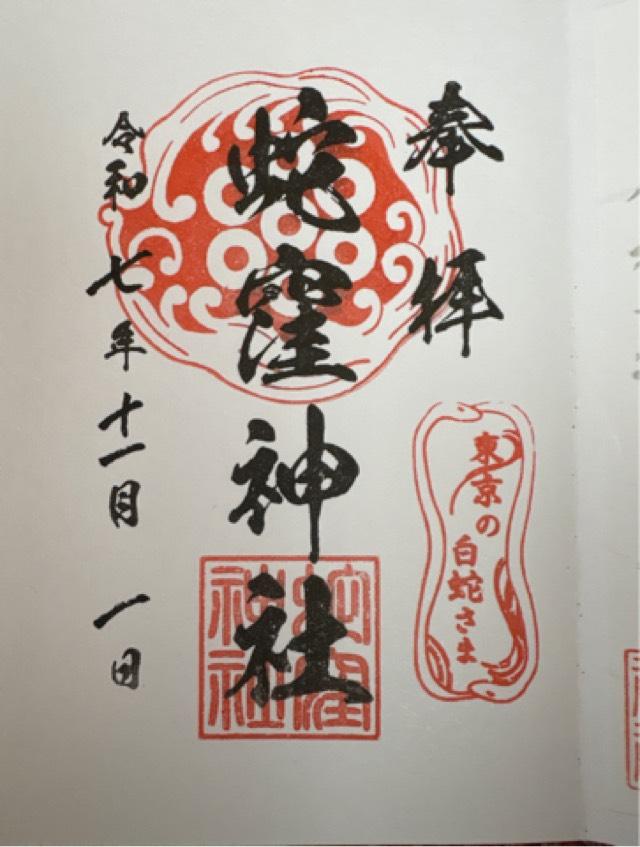 奉拝
東京の
白蛇さま
蛇窪神社
蛇窪
神社
令和七年十一月一日